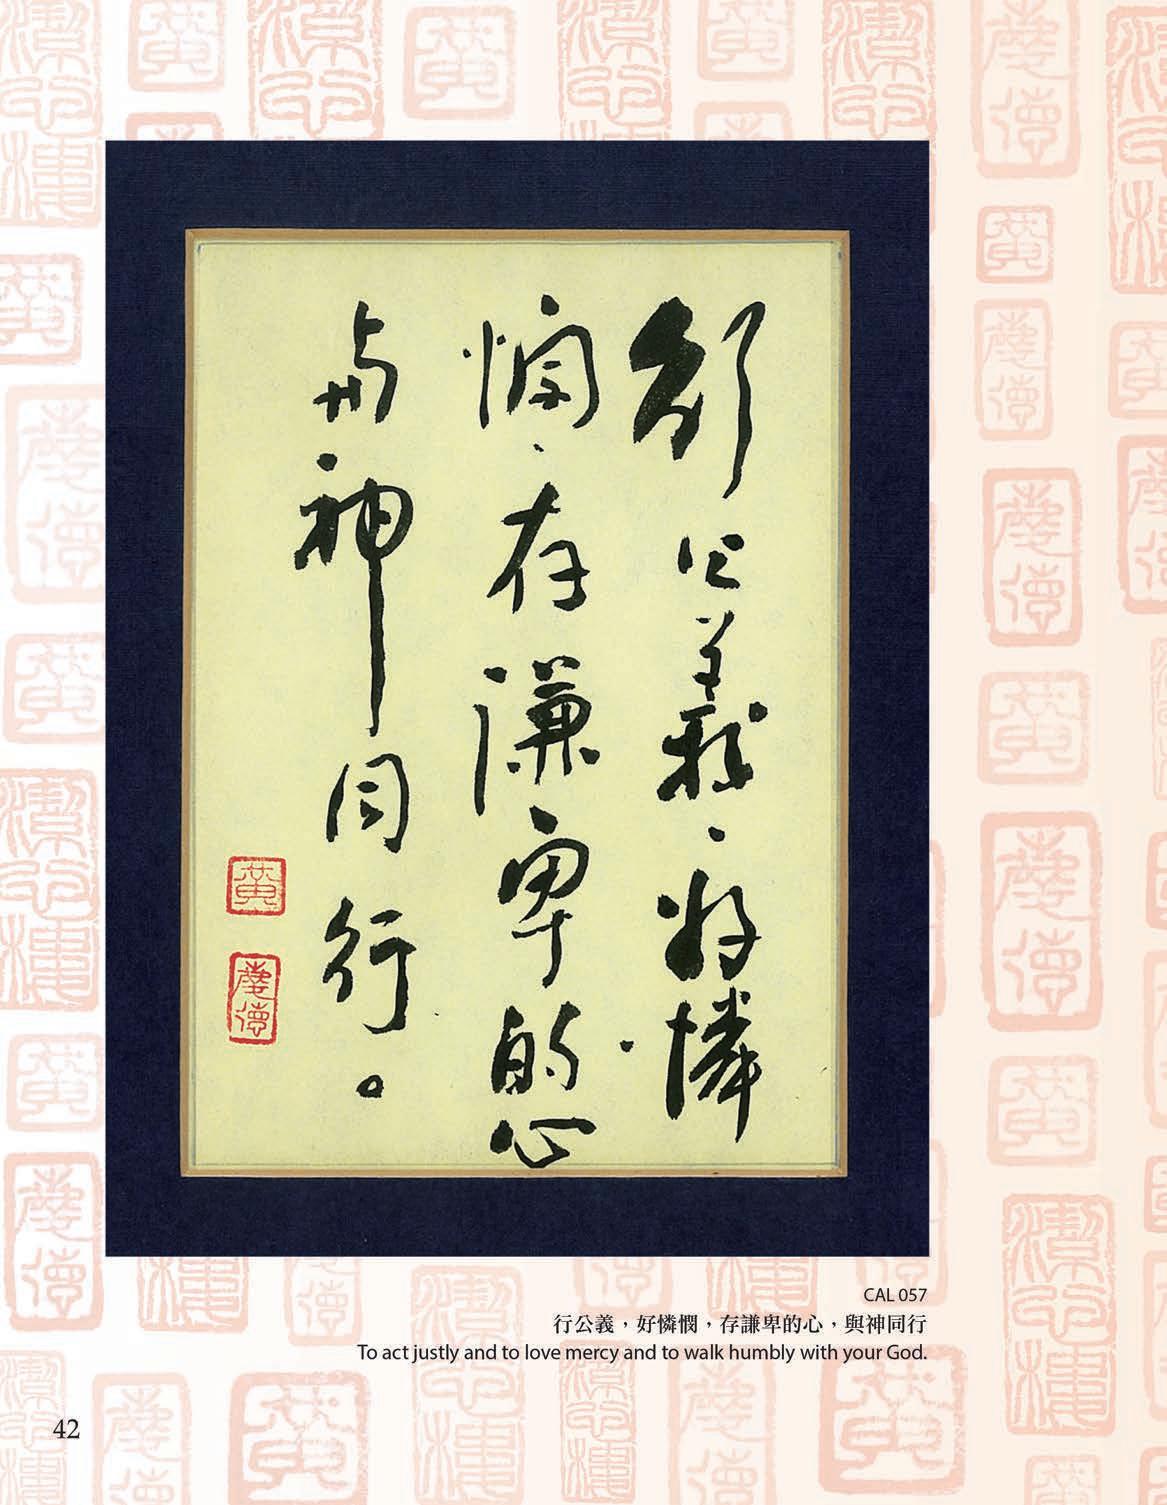 行公義、好憐
憫、存謙卑的心、
與神同行。
黃
慶德
CAL 057
行公義，好憐憫，存謙卑的心，與神同行
To act justly and to love mercy and to walk humbly with your God.
42